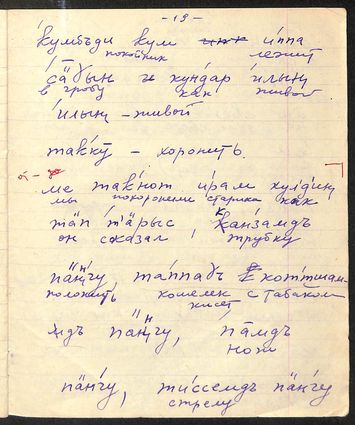 - 19 -
кумбъди кум иппа
покойник лежит
са̄дын и кунда̄р илың
в гробу как живой
илың – живой
таккӯ – хоронить.
ме такнот ирам кулдиң
мы похоронили старика как
тап тарыс, канзамдъ
он сказал, трубку
пӓңгу, таппадъ котташам-
положить кошелек с табаком
кисет
мдъ пӓңгу, памдъ
нож
пӓнгу, тиссемдъ пӓнгу
стрелу